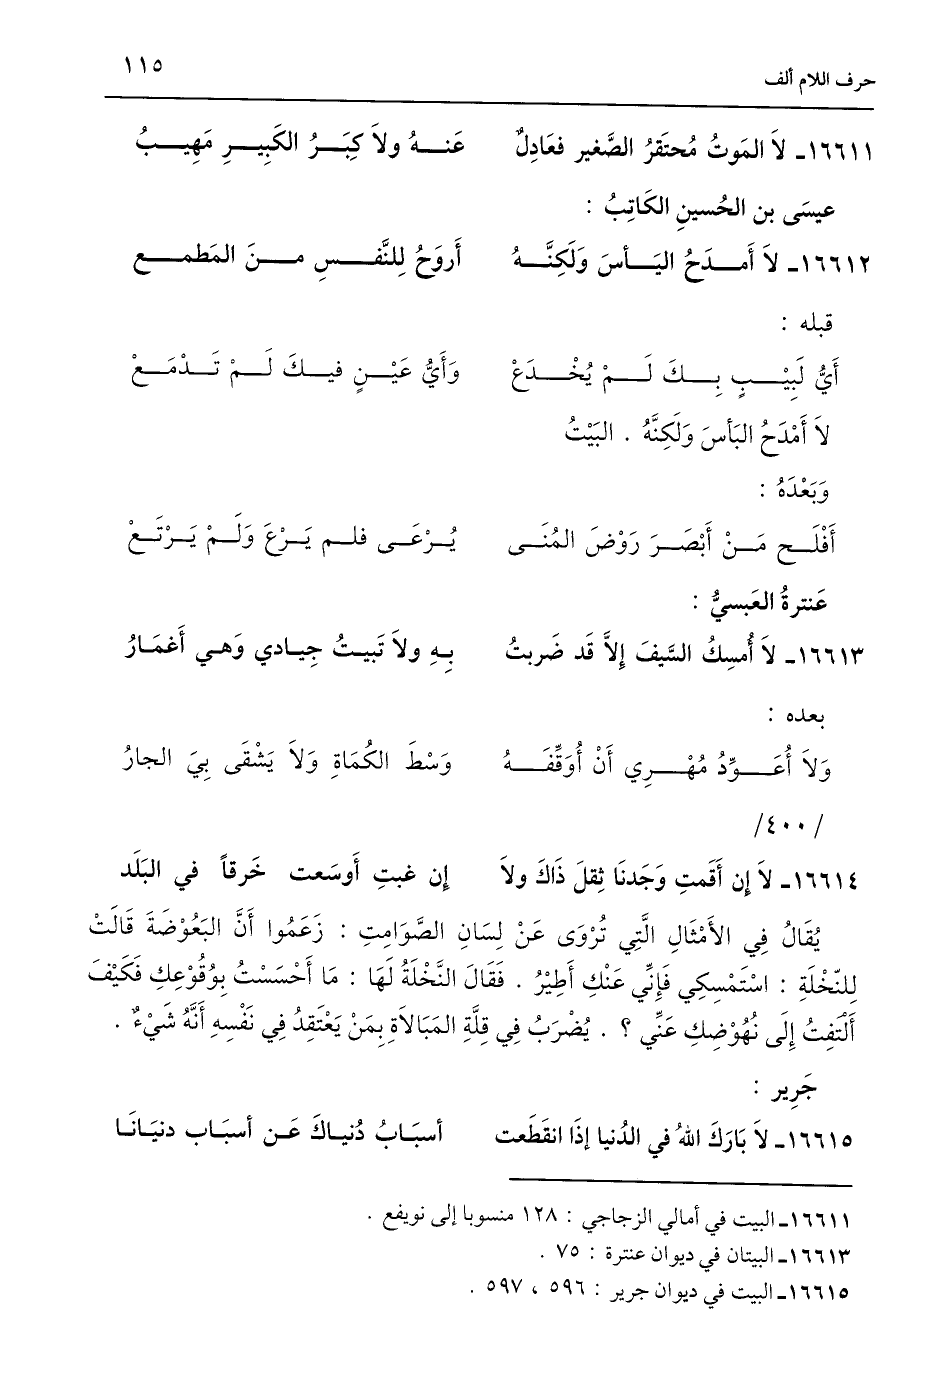 حرف اللام ألف ١١٥
١٦٦١١ـ لاَ المَوتُ مُحتَقرُ الصَّغير فعَادِلٌ عَنـهُ ولاَ كِبَـرُ الكَبِيـرِ مَهِيـبُ
عيسَى بن الحُسينِ الكَاتِبُ :
١٦٦١٢ـ لاَ أَمـدَحُ اليَـأسَ وَلَكِنَّـهُ أَروَحُ لِلنَّفـسِ مـنَ المَطمـعِ
قبله :
أَيُّ لَبِيْـبٍ بِـكَ لَـمْ يُخْـدَعْ وَأَيُّ عَيْـنٍ فيـكَ لَـمْ تَـدْمَـعْ
لاَ أَمْدَحُ اليَأسَ وَلَكِنَّهُ . البَيْتُ
وَبَعْدَهُ :
أَفْلَـح مَـنْ أَبْصَـرَ رَوْضَ المُنَـى يُـرْعَـى فلـم يَـرْعَ وَلَـمْ يَـرْتَـعْ
عَنترةُ العَبسيُّ :
١٦٦١٣ـ لاَ أُمسِكُ السَّيفَ إلاَّ قَد ضَربتُ بِهِ ولاَ تَبيـتُ جِيـادي وَهـي أَغمَـارُ
بعده :
وَلاَ أُعَـوِّدُ مُهْـرِي أَنْ أُوَقِّفَـهُ وَسْطَ الكُمَاةِ وَلاَ يَشْقَى بِيَ الجارُ
/٤٠٠/
١٦٦١٤ـ لاَ إن أَقَمتِ وَجَدنَا ثِقلَ ذَاكَ ولاَ إن غبتِ أَوسَعت خَرقاً في البَلَد
يُقَالُ فِي الأَمْثَالِ الَّتِي تُرْوَى عَنْ لِسَانِ الصَّوَامِتِ : زَعَمُوا أَنَّ البَعُوْضَةَ قَالَتْ
لِلنَّخْلَةِ : اسْتَمْسِكِي فَإِنِّي عَنْكِ أَطِيْرُ . فَقَالَ النَّخْلَةُ لَهَا : مَا أَحْسَسْتُ بِوُقُوْعِكِ فَكَيْفَ
أَلْتَفِتُ إِلَى نُهُوْضِكِ عَنِّي ؟ . يُضْرَبُ فِي قِلَّةِ المُبَالاَةِ بِمَنْ يَعْتَقِدُ فِي نَفْسِهِ أَنَّهُ شَيْءٌ .
جَرِير :
١٦٦١٥ـ لاَ بَارَكَ اللهُ في الدُنيا إذَا انقَطَعت أسبَـابُ دُنيـاكَ عَـن أسبَـاب دنيَـانَـا
١٦٦١١ـ البيت في أمالي الزجاجي : ١٢٨ منسوبا إلى نويفع .
١٦٦١٣ـ البيتان في ديوان عنترة : ٧٥ .
١٦٦١٥ـ البيت في ديوان جرير : ٥٩٦ ، ٥٩٧ .